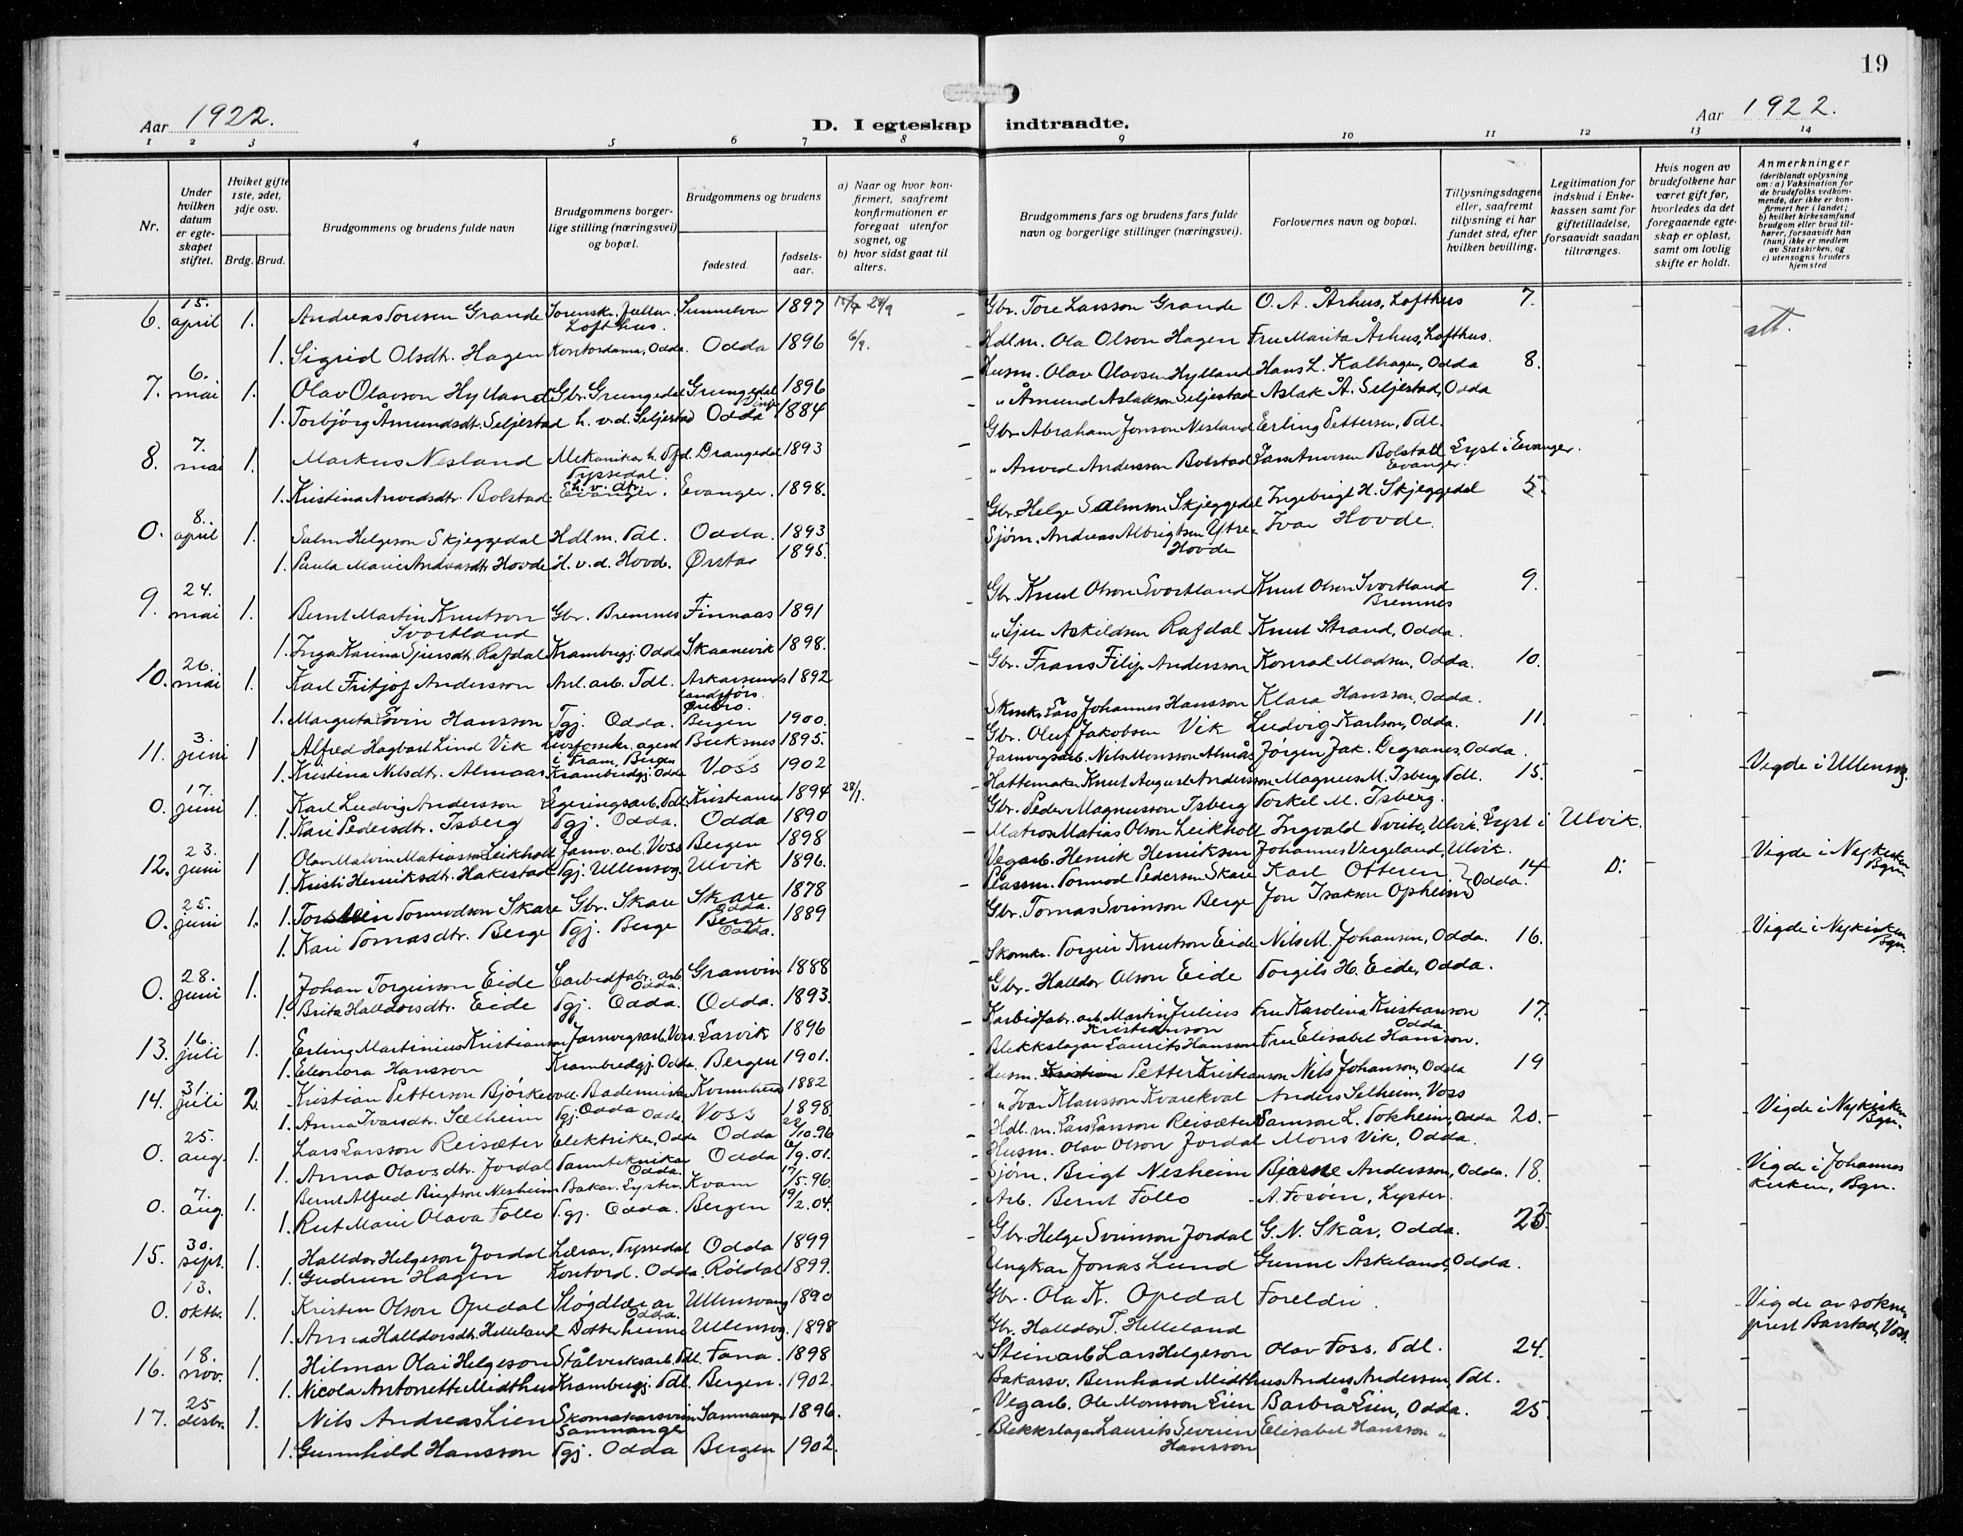 19
Aar 1922.
D. I egteskap indtraadte.
Aar 1922.
1 2 3 4 5 6 7 8 9 10 11 12 13 14
Nr.
Under hvilken datum er egteskapet stiftet.
Hviket gifte 1ste, 2det, 3dje osv.
Brdg. Brud.
Brudgommens og brudens fulde navn
Brudgommens borgerlige stilling (næringsvei) og bopæl.
Brudgommens og brudens
fødested.
fødselsaar.
a) Naar og hvor konfirmert, saafremt konfirmationen er foregaat utenfor sognet, og
b) hvor sidst gaat til alters.
Brudgommens fars og brudens fars fulde navn og borgerlige stillinger (næringsvei).
Forlovernes navn og bopæl.
Tillysningsdagene eller, saafremt tillysning ei har fundet sted, efter hvilken bevilling.
Legitimation for indskud i Enkekassen samt for giftetilladelse, forsaavidt saadan tiltrænges.
Hvis nogen av brudefolkene har været gift før, hvorledes da det foregaaende egteskap er opløst, samt om lovlig skifte er holdt.
Anmerkninger
(deriblandt oplysning om: a) Vaksination for de brudefolks vedkommende, der ikke er konfirmert her i landet; b) hvilket kirkesamfund brudgom eller brud tilhører, forsaavidt han (hun) ikke er medlem av Statskirken, og c) utensogns bruders hjemsted
6. 15. april 1. Andreas Toresen Grande Sorensk. fullm. Lofthus. Sunnelven 1897 Gbr. Tore Larsson Grande O. A. Århus, Lofthus 7.
1. Sigrid Olsdtr. Hagen Kontordama, Odda. Odda 1896 6/9. Hdlm. Ola Olson Hagen Fru Marita Århus, Lofthus. att.
7. 6. mai 1. Olav Olavson Hylland Gbr. Grungedal Grungedal 1896 Husm. Olav Olavsen Hylland Hans L. Kalhagen, Odda 8.
1. Torbjørg Åmundsdt. Seljestad h. v. d. Seljestad Odda 1884 " Åmund Aslakson Seljestad Aslak Å. Seljestad, Odda
8. 7. mai 1. Markus Nesland Mekanikar Tyssedal. Drangedal 1893 Gbr. Abraham Jonson Nesland Erling Pettersen, Tdl.
1. Kristina Arvedsdtr. Bolstad h. v. dtr. Evanger. Evanger. 1898. " Anved Anderssen Bolstad Bolstad Evanger. Lyst i Evanger.
0. 8. april 1. Salm. Helgeson Skjeggedal Hdlm. Tdl. Odda. 1893 Gbr. Helge Salmson Skjeggedal Ingebrigt H. Skjeggedal 5.
1. Paula Marie Andrasdtr Hovde H. v. d. Hovde. Ørsta 1895. Sjørn. Andreas Albrigtsen Ytre-Hovde Ivar Hovde.
9. 24. mai 1. Bernt Martin Knutson Svortland Gbr. Bremnes Finnaas 1891 Gbr. Knut Olson Svortland Knut Olson Svortland Bremnes 9.
1. Inga Karina Sjursdt. Rafdal Krambugj. Odda Skaanevik 1898. " Sjur Askildsen Rafdal Knut Strand, Odda.
10. 26. mai 1. Karl Fritjof Andersson Anl. arb. Tdl. Askarsunds landsförs. Örebro. 1892 Gbr. Frans Filip Andersson Konrad Madsen, Odda. 10.
1. Margreta Hansson Tgj. Odda. Bergen 1900. Skmk. Lars Johannes Hansson Klara Hansson, Odda.
11. 3. juni 1 Alfred Hagbart Lind Vik agent i Fram, Bergen Buksnes 1895. Gbr. Oluf Jakobsen Vik Ludvig Karlson, Odda. 11.
1. Kristina Nilsdtr. Almaas Krambudgj. Odda Voss 1902 Jarnvegsarb. Nils Monsson Almås Jørgen Jak. Digranes, Odda.
0. 17. juni 1. Karl Ludvig Andersson Segringsarb. Tdl. Kristiania 1894 28/1. Hattemaker Knut August Andersson Magnus M. Isberg, Tdl. 15. Vigde i Ullensvg.
1. Kari Pedersdtr. Isberg Tgj. Odda. Odda 1890 Gbr. Peder Magnusson Isberg Torkel M. Isberg.
12. 23. juni 1 Olav Malvin Matiasson Leikholt Jarnv. arb. Voss Bergen 1898 Matros Matias Olson Leikholt Ingvald Tveite, Ulvik. Lyst i Ulvik.
1. Kristi Henriksdtr. Hakestad Tgj. Ullensvg. Ulvik 1896. Vegarb. Henrik Henriksen Johannes Vergeland, Ulvik.
0. 25. juni 1. Torstein Tormodson Skare Gbr. Skare Skare Odda. 1878 Plassm. Tormod Pedersen Skare Karl Ottesen 14 D: Vigde i Nykirken Bgn.
1. Kari Tomasdtr. Berge Tgj. Berge Berge Odda. 1889 Gbr. Tomas Svinson Berge Jon Isakson Opheim Odda.
0. 28. juni 1. Johan Torgeirson Eide Carbidfabr. arb. Odda. Granvin 1888 Skomkr. Torgeir Knutson Eide Nils M. Johansen, Odda. 16. Vigde i Nykirken Bgn.
1. Brita Halldorsdtr. Eide Tgj. Odda. Odda. 1893. Gbr. Halldor Olson Eide Torgils H. Eide, Odda.
13. 16. juli 1. Erling Martinius Kristianson Jarnvegsarb. Voss. Larvik 1896 Karbidfabr. arb. Martin Julius Kristianson Fru Karolina Kristianson Odda. 17.
1. Eleonora Hansson Krambudgj. Odda. Bergen 1901. Blekkslagar Laurits Hansson Fru Elisabet Hansson.
14. 31. juli 2. Kristian Petterson Bjørke Bademeister Odda 1882 Husm. Petter Kristianson Nils Johanson, Odda 19
1. Anna Ivarsdtr. Sælheim Tgj. Odda Voss 1898. " Ivar Klausson Kvarekval Anders Selheim, Voss
0. 25. aug. 1. Lars Larsson Reisæter Elektrike, Odda Odda 22/10.96 Hdl. m. Lars Larsson Reisæter Samson L. Tokheim, Odda 20. Vigde i Nykirken Bgn.
1. Anna Olavsdtr. Jordal Tannteknikar Odda. Odda 6/9.01. Husm. Olav Olson Jordal Mons Vik, Odda.
0. 7. aug. 1. Bernt Alfred Brigtson Nesheim Bakar. Lyster. Kvam 17/5.96. Sjørn. Brigt Nesheim Bjarne Andersson, Odda. 18. Vigde i Johannes kirken, Bgn.
1. Rut Marie Olava Follo Tgj. Odda. Bergen 19/2.04. Arb. Bernt Follo A. Fosøen, Lyster.
15. 30. sept. 1. Halldor Helgeson Jordal Lærar, Tyssedal Odda 1899 Gbr. Helge Svinson Jordal G. N. Skår, Odda. 23.
1. Gudrun Hagen Kontord. Odda. Røldal 1899. Ungkar Jonas Lund Gunne Askeland, Odda.
0. 13. oktbr. 1. Kristen Olson Opedal Sløgdlærar Odda. Ullensvang 1890 Gbr. Ola K. Opedal Foreldri. Vigde av sokneprest Barstad, Voss.
1. Anna Halldorsdt. Helleland Dotter heime Ullensvg. 1898 Gbr. Halldor T. Helleland
16. 18. nov. 1. Hilmar Olai Helgeson Stålverksarb. Tdl. Fana. 1898 Steinarb Lars Helgeson Olav Foss, Tdl. 24.
1. Nicola Antonette Midthus Krambugj. Tdl. Bergen. 1902. Bakarsv. Bernhard Midthus Anders Andersen, Tdl.
17. 25 desbr. 1. Nils Andreas Lien Skomakarsvein Samnanger Samnanger 1896. Vegarb. Ole Monsson Lien Barbrå Lien, Odda. 25.
1. Gunnhild Hansson Tgj. Odda Bergen 1902. Blekkslagar Laurits Severin Hansson Elisabet Hansson "